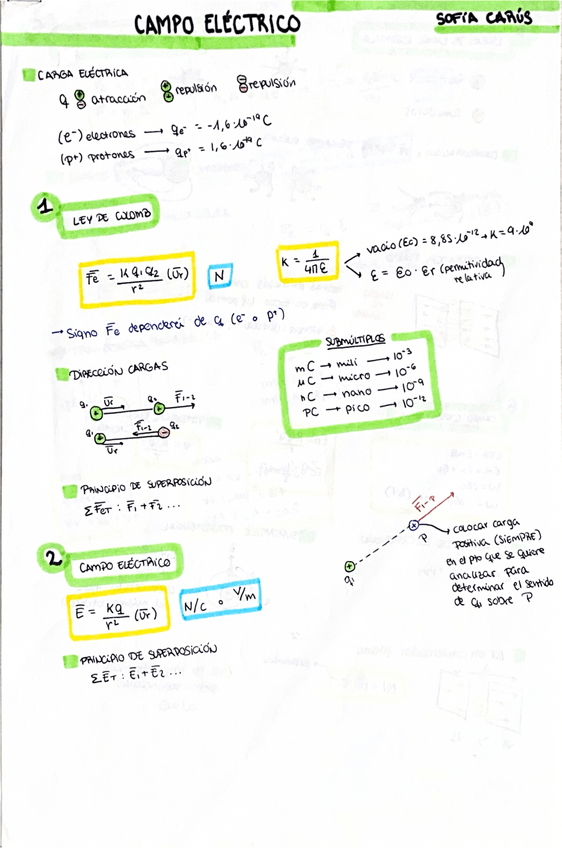 CAMPO ELÉCTRICO
SOFÍA CARÚS
CARGA ELÉCTRICA
q + - atracción + + repulsión - - repulsión
(e-) electrones → qe- = -1,6·10^-19 C
(p+) protones → qp+ = 1,6·10^-19 C
1 LEY DE COLOMB
Fe = K q1 q2 / r² (Ur) N
K = 1 / 4πε
vacío (εo) = 8,85·10^-12 → K = 9·10^9
ε = εo · εr (permitividad relativa)
→ Signo Fe dependerá de q (e- o p+)
SUBMÚLTIPLOS
mC → mili → 10^-3
μC → micro → 10^-6
nC → nano → 10^-9
PC → pico → 10^-12
DIRECCIÓN CARGAS
q1 + Ur q2 + F1-2
q1 + Ur F1-2 q2 -
PRINCIPIO DE SUPERPOSICIÓN
ΣFeT : F1 + F2 ...
F1-P
q1 +
P
colocar carga
positiva (SIEMPRE)
en el pto que se quiere
analizar para
determinar el sentido
de q1 sobre P
2 CAMPO ELÉCTRICO
E = kq / r² (Ur) N/C o V/m
PRINCIPIO DE SUPERPOSICIÓN
ΣET : E1 + E2 ...